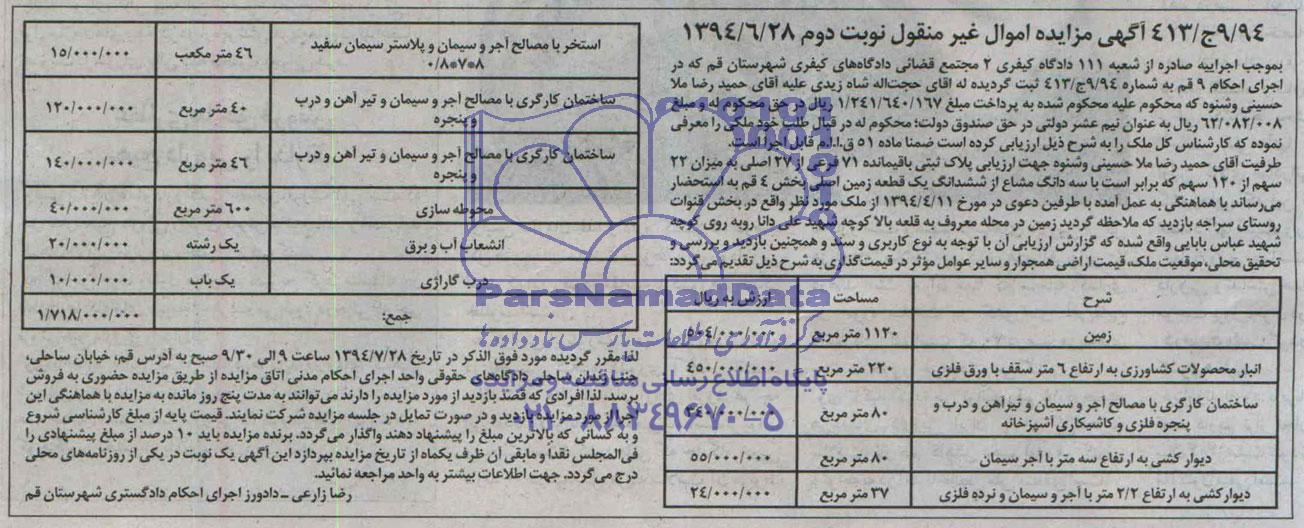 ۹/۹۴ج/۴۱۳ آگهی مزایده اموال غیر منقول نوبت دوم ۱۳۹۴/۶/۲۸
بموجب اجراییه صادره از شعبه ۱۱۱ دادگاه کیفری ۲ مجتمع قضائی دادگاه‌های کیفری شهرستان قم که در
اجرای احکام ۹ قم به شماره ۹/۹۴ج/۴۱۳ ثبت گردیده له اقای حجت‌اله شاه زیدی علیه آقای حمید رضا ملا
حسینی وشنوه که محکوم علیه محکوم شده به پرداخت مبلغ ۱/۲۴۱/۶۴۰/۱۶۷ ریال در حق محکوم له و مبلغ
۶۲/۰۸۲/۰۰۸ ریال به عنوان نیم عشر دولتی در حق صندوق دولت؛ محکوم له در قبال طلب خود ملکی را معرفی
نموده که کارشناس کل ملک را به شرح ذیل ارزیابی کرده است ضمنا ماده ۵۱ ق.ا.ا.م قابل اجرا است.
ظرفیت آقای حمید رضا ملا حسینی وشنوه جهت ارزیابی پلاک ثبتی باقیمانده ۷۱ فرعی از ۲۷ اصلی به میزان ۲۲
سهم از ۱۲۰ سهم که برابر است با سه دانگ مشاع از ششدانگ یک قطعه زمین اصلی بخش ۴ قم به استحضار
می‌رساند با هماهنگی به عمل آمده با طرفین دعوی در مورخ ۱۳۹۴/۴/۱۱ از ملک مورد نظر واقع در بخش قنوات
روستای سراجه بازدید که ملاحظه گردید زمین در محله معروف به قلعه بالا کوچه شهید علی دانا روبه روی کوچه
شهید عباس بابایی واقع شده که گزارش ارزیابی آن با توجه به نوع کاربری و سند و همچنین بازدید و بررسی و
تحقیق محلی، موقعیت ملک، قیمت اراضی همجوار و سایر عوامل مؤثر در قیمت‌گذاری به شرح ذیل تقدیم می‌گردد:
شرح مساحت ارزش به ریال
زمین ۱۱۲۰ متر مربع ۵۰۴/۰۰۰/۰۰۰
انبار محصولات کشاورزی به ارتفاع ۶ متر سقف با ورق فلزی ۲۲۰ متر مربع ۴۵۰/۰۰۰/۰۰۰
ساختمان کارگری با مصالح آجر و سیمان و تیرآهن و درب و
پنجره فلزی و کاشیکاری آشپزخانه ۸۰ متر مربع
دیوار کشی به ارتفاع سه متر با آجر سیمان ۸۰ متر مربع ۵۵/۰۰۰/۰۰۰
دیوارکشی به ارتفاع ۲/۲ متر با آجر و سیمان و نرده فلزی ۳۷ متر مربع ۲۴/۰۰۰/۰۰۰
استخر با مصالح آجر و سیمان و پلاستر سیمان سفید
۸*۷*۰/۸ ۴۶ متر مکعب ۱۵/۰۰۰/۰۰۰
ساختمان کارگری با مصالح آجر و سیمان و تیر آهن و درب
و پنجره ۴۰ متر مربع ۱۲۰/۰۰۰/۰۰۰
ساختمان کارگری با مصالح آجر و سیمان و تیر آهن و درب
و پنجره ۴۶ متر مربع ۱۴۰/۰۰۰/۰۰۰
محوطه سازی ۶۰۰ متر مربع ۴۰/۰۰۰/۰۰۰
انشعاب آب و برق یک رشته ۲۰/۰۰۰/۰۰۰
درب گاراژی یک باب ۱۰/۰۰۰/۰۰۰
جمع: ۱/۷۱۸/۰۰۰/۰۰۰
لذا مقرر گردیده مورد فوق الذکر در تاریخ ۱۳۹۴/۷/۲۸ ساعت ۹ الی ۹/۳۰ صبح به آدرس قم، خیابان ساحلی،
جنب زندان ساحلی دادگاه‌های حقوقی واحد اجرای احکام مدنی اتاق مزایده از طریق مزایده حضوری به فروش
برسد. لذا افرادی که قصد بازدید از مورد مزایده را دارند می‌توانند به مدت پنج روز مانده به مزایده با هماهنگی این
اجرا از مورد مزایده بازدید و در صورت تمایل در جلسه مزایده شرکت نمایند. قیمت پایه از مبلغ کارشناسی شروع
و به کسانی که بالاترین مبلغ را پیشنهاد دهند واگذار می‌گردد. برنده مزایده باید ۱۰ درصد از مبلغ پیشنهادی را
فی‌المجلس نقداً و مابقی آن ظرف یکماه از تاریخ مزایده بپردازد این آگهی یک نوبت در یکی از روزنامه‌های محلی
درج می‌گردد. جهت اطلاعات بیشتر به واحد مراجعه نمائید.
رضا زارعی – دادورز اجرای احکام دادگستری شهرستان قم
ParsNamadData
مرکز فرآوری اطلاعات پارس نماد داده‌ها
پایگاه اطلاع رسانی مناقصه و مزایده
۰۲۱-۸۸۳۴۹۶۷۰-۵